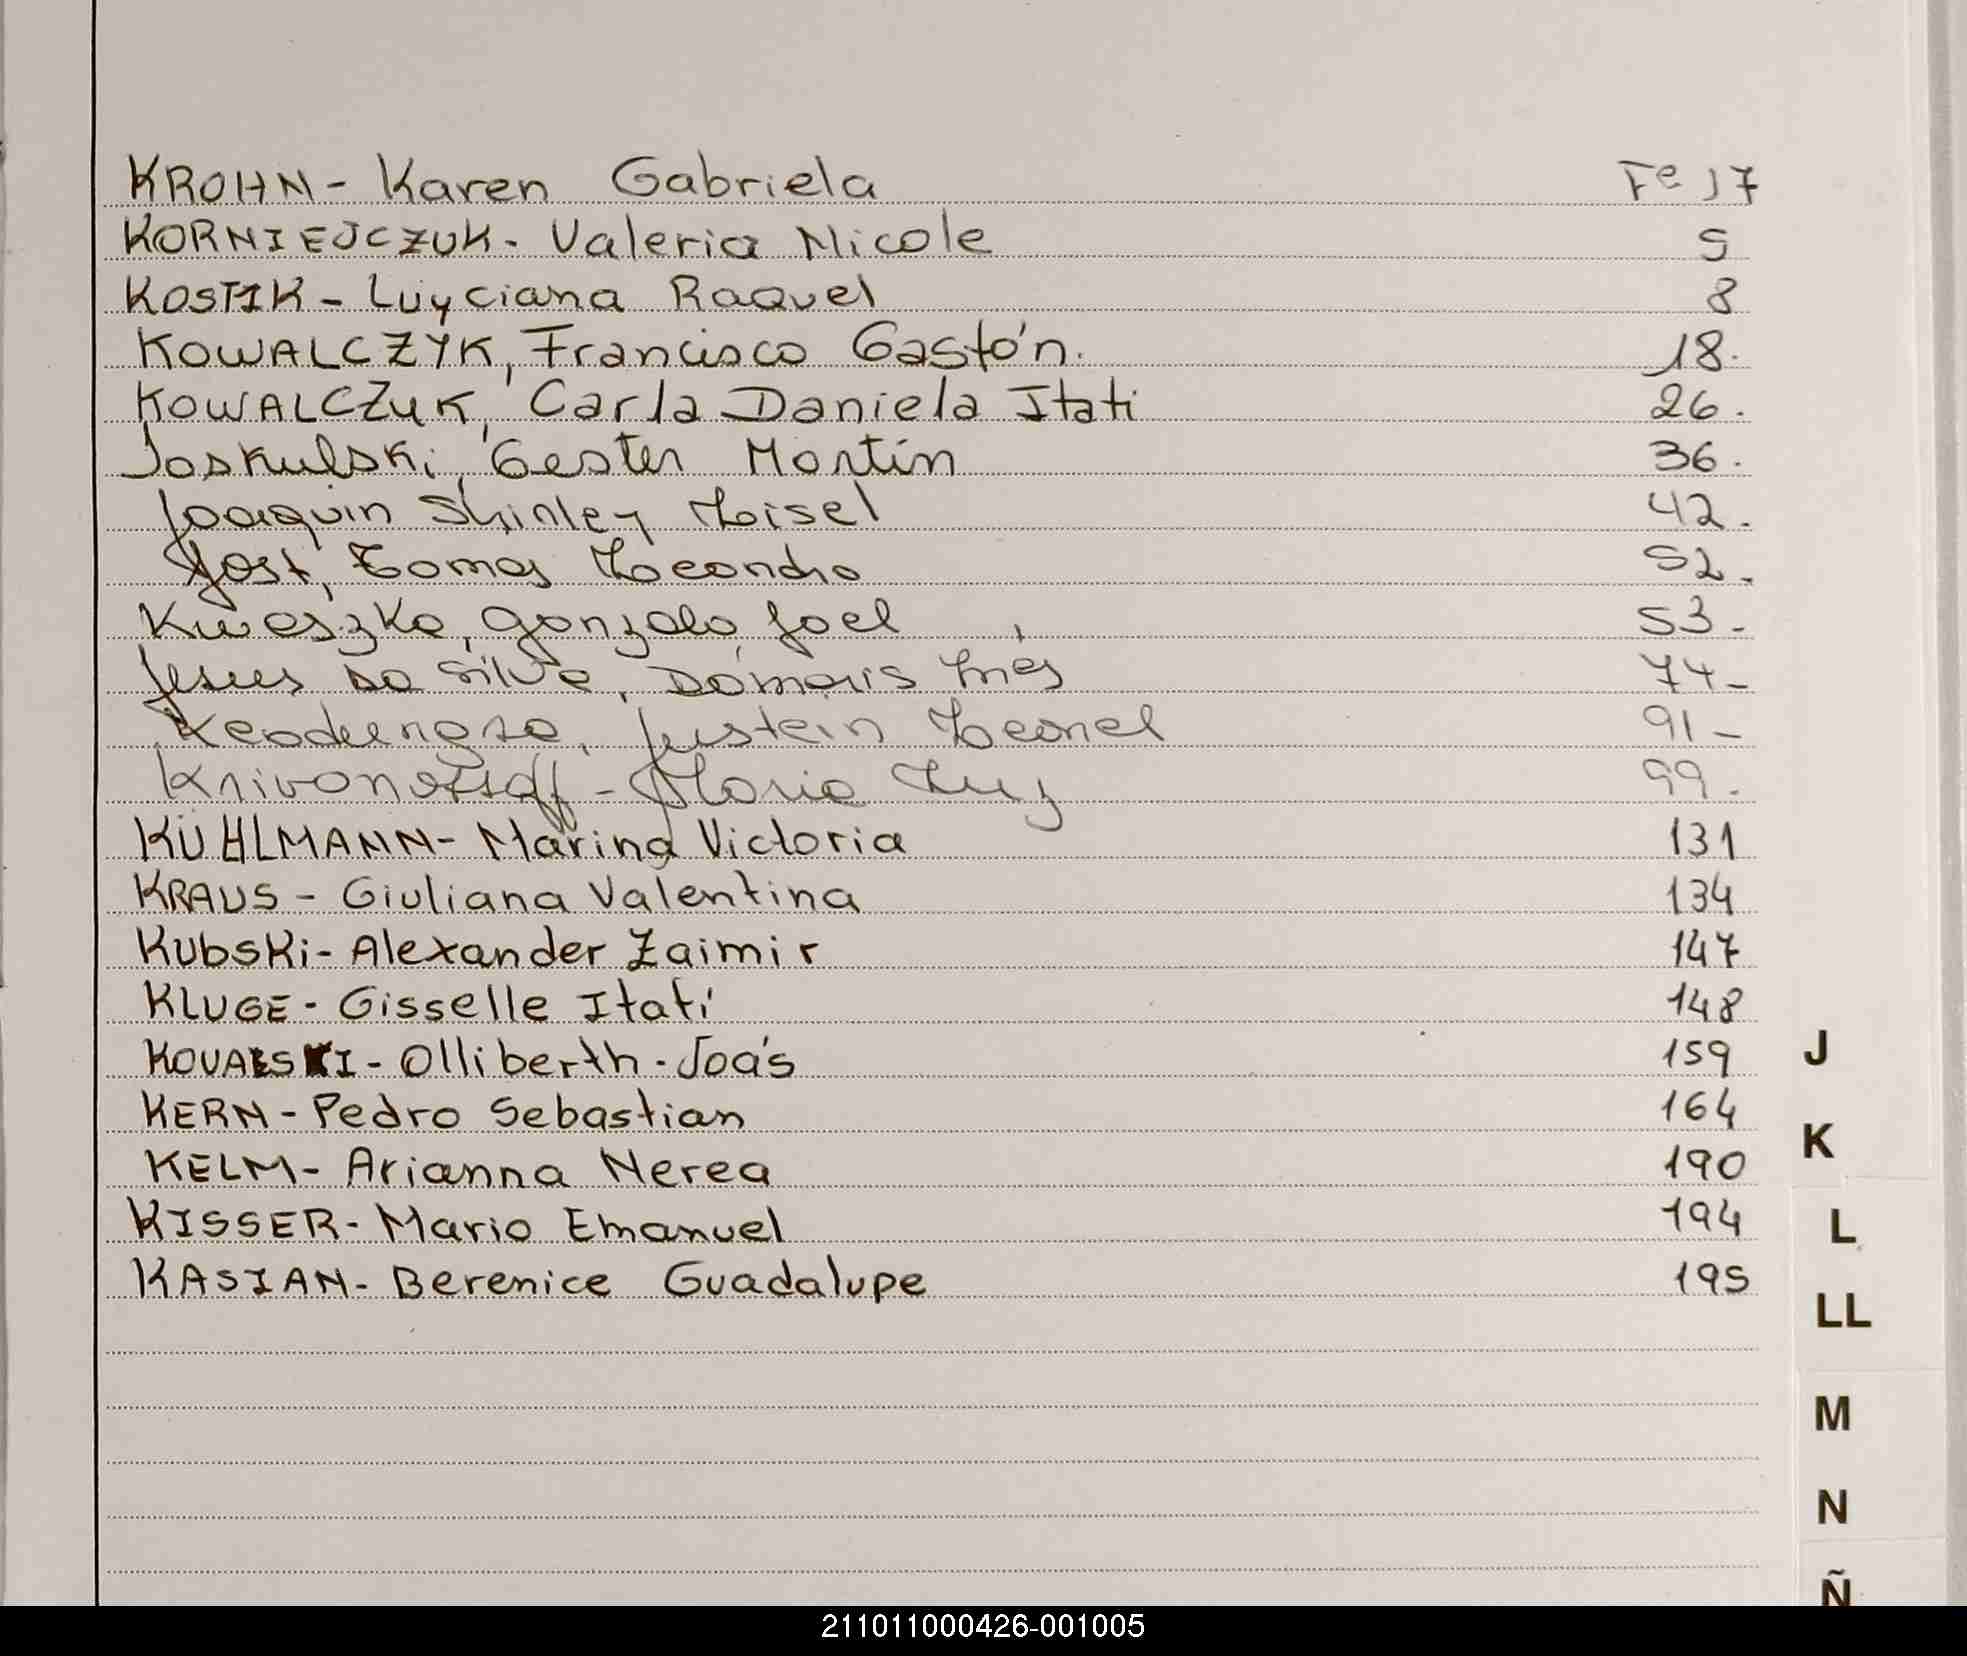 KROHN - Karen Gabriela Fº 17
KORNIEJCZUK - Valeria Nicole 5
KOSTIK - Luyciana Raquel 8
KOWALCZYK, Francisco Gastón. 18.
KOWALCZUK, Carla Daniela Itati 26.
Joskulski, Gester Martín 36.
Joaquin Shirley Lisel 42.
Jost, Tomas Leandro 52.
Kweszko, Gonzalo Joel 53-
Jesus Da Silva, Damaris Inés 74-
Justein Leonel 91-
Maria Luz 99.
KÜHLMANN - Marina Victoria 131
KRAUS - Giuliana Valentina 134
KUbSKi - Alexander Zaimir 147
KLUGE - Gisselle Itatí 148
KOVALSKI - Olliberth - Joás 159
J
KERN - Pedro Sebastian 164
K
KELM - Arianna Nerea 190
KISSER - Mario Emanuel 194
L
KASIAN - Berenice Guadalupe 195
LL
M
N
Ñ
211011000426-001005